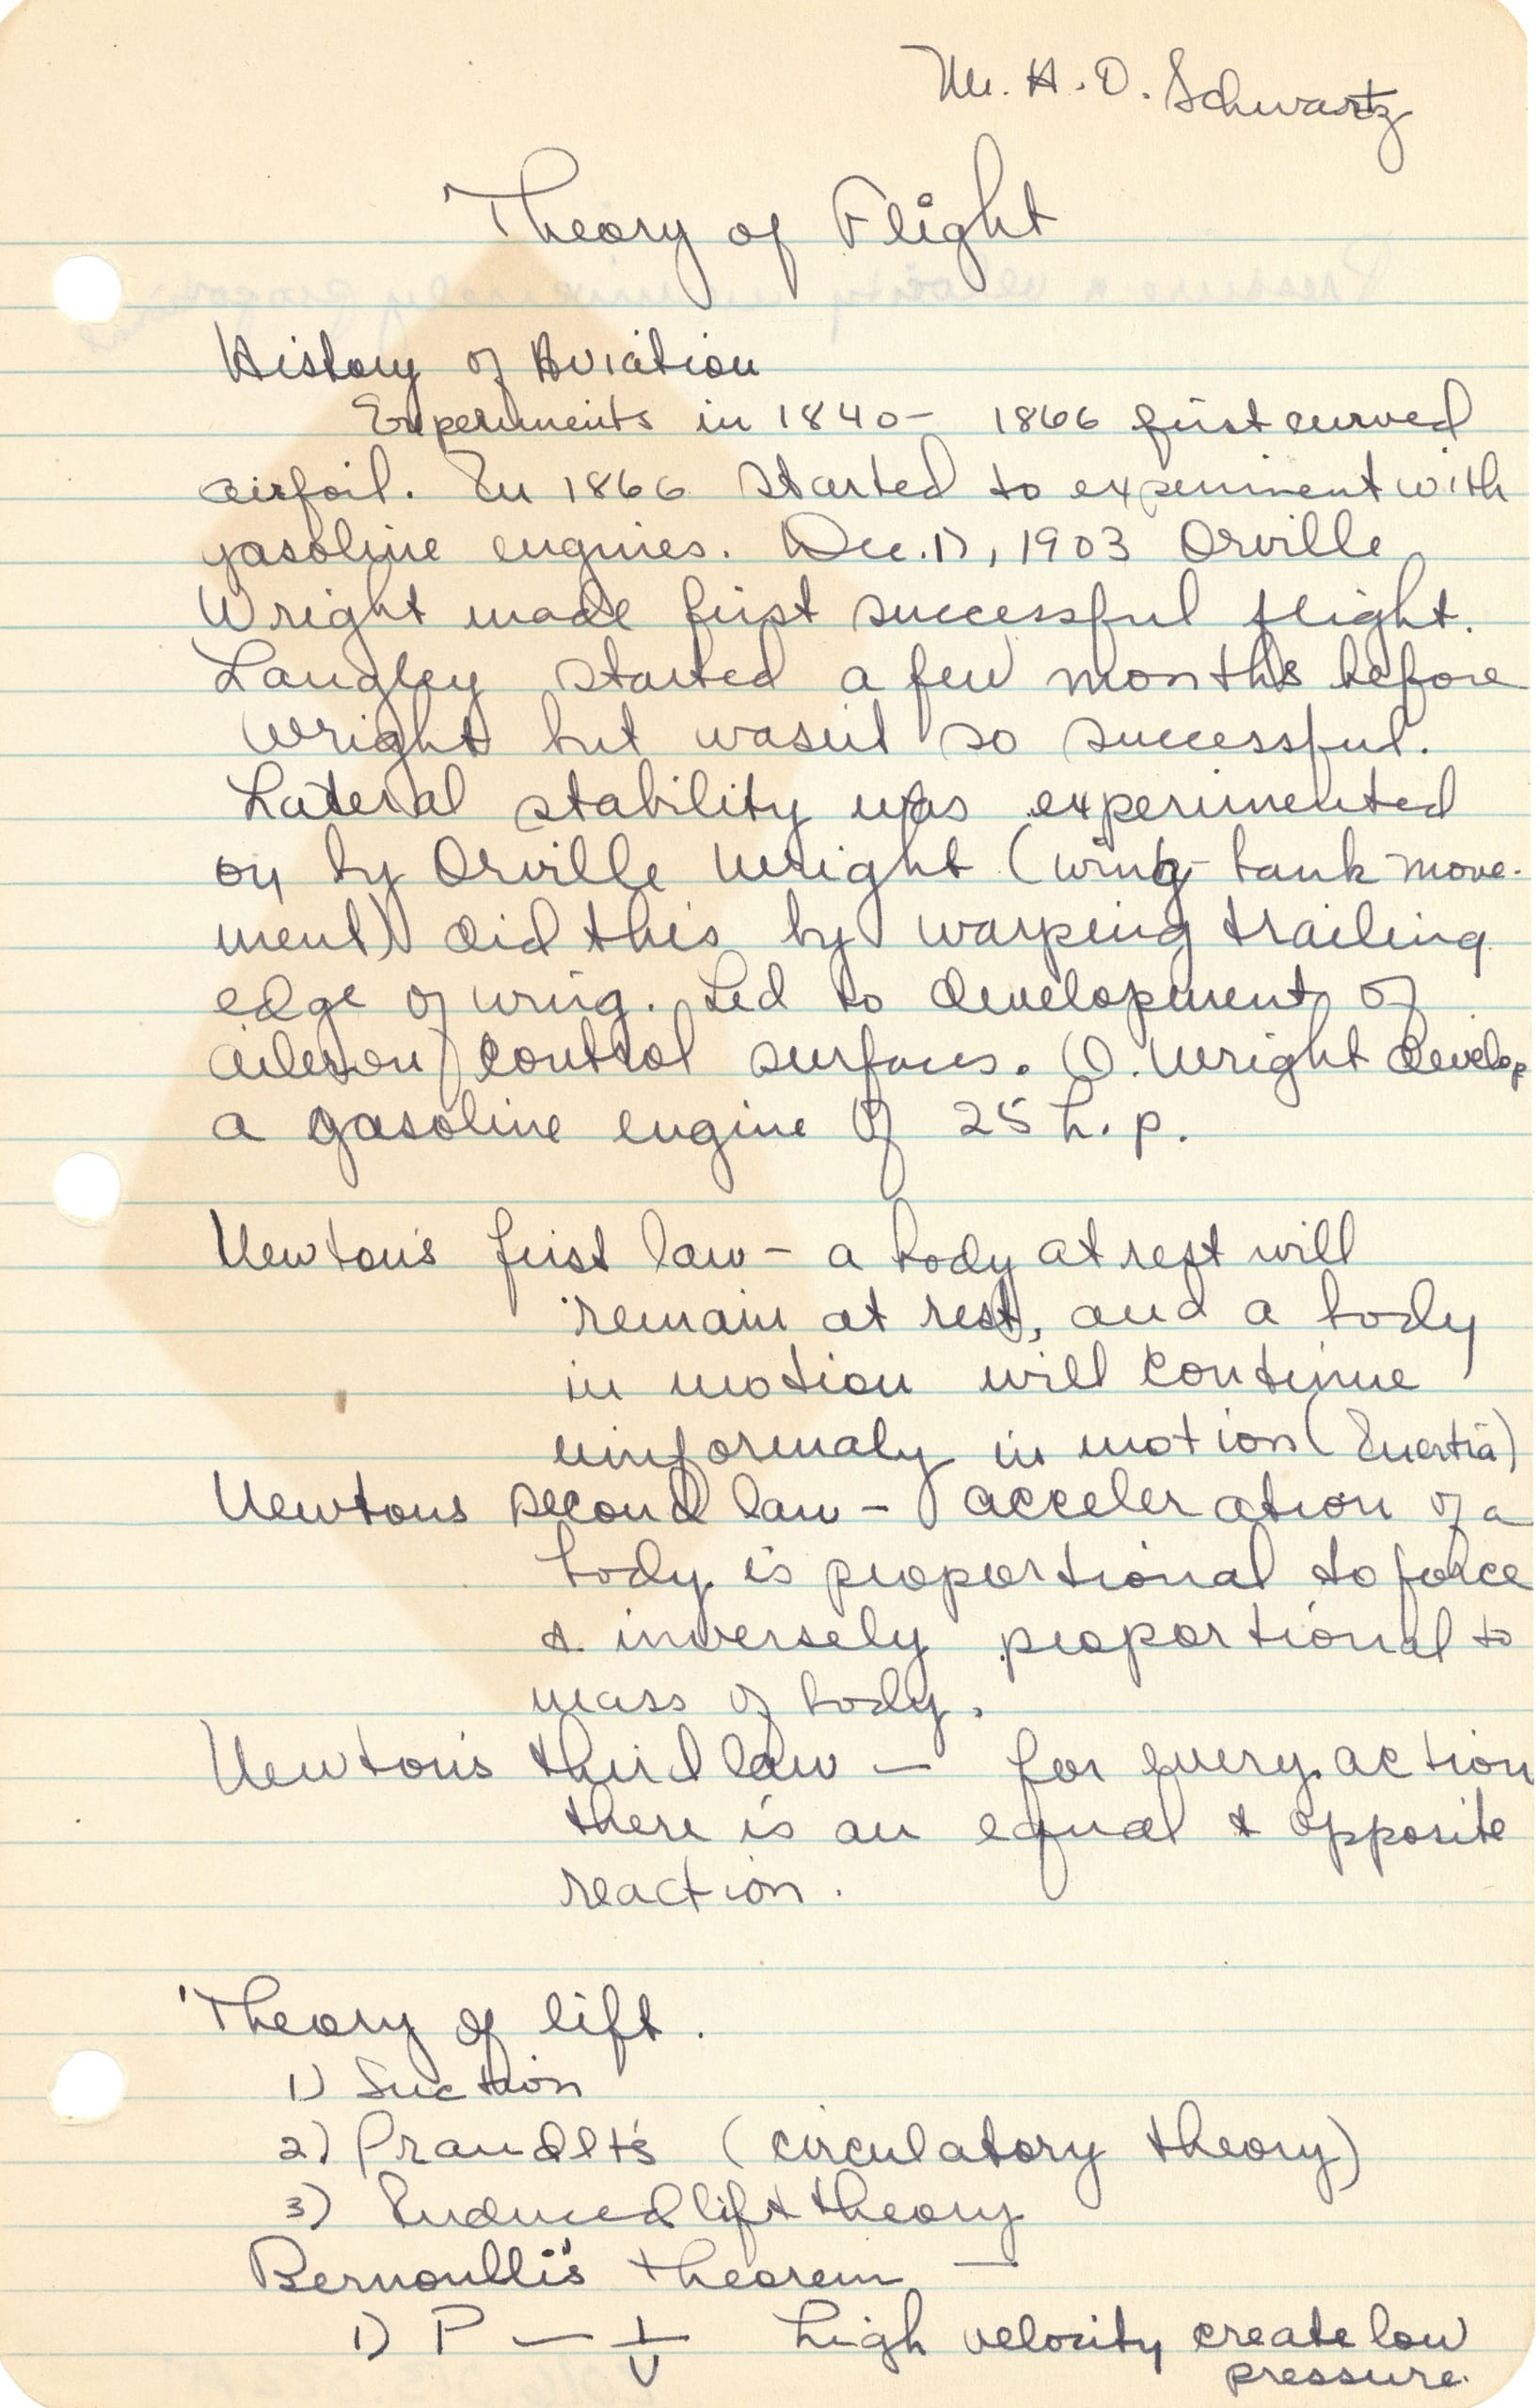 Mr. H. D. Schwartz
Theory of Flight
History of Aviation
Experiments in 1840 - 1866 first curved
airfoil. In 1866 started to experiment with
gasoline engines. Dec. 17, 1903 Orville
Wright made first successful flight.
Langley started a few months before
Wright but wasn't so successful.
Lateral stability was experimented
on by Orville Wright (wing-bank move-
ment) did this by warping trailing
edge of wing. Led to development of
aileron control surfaces. O. Wright develop
a gasoline engine of 25 h.p.
Newton's first law - a body at rest will
remain at rest, and a body
in motion will continue
uniformaly in motion (Inertia)
Newtons second law - acceleration of a
body is proportional to force
& inversely proportional to
mass of body.
Newton's third law - for every action
there is an equal & opposite
reaction.
Theory of lift.
1) Suction
2) Prandlt's (circulatory theory)
3) Induced lift theory
Bernoulli's theorem -
1) P — 1/V high velocity create low
pressure.